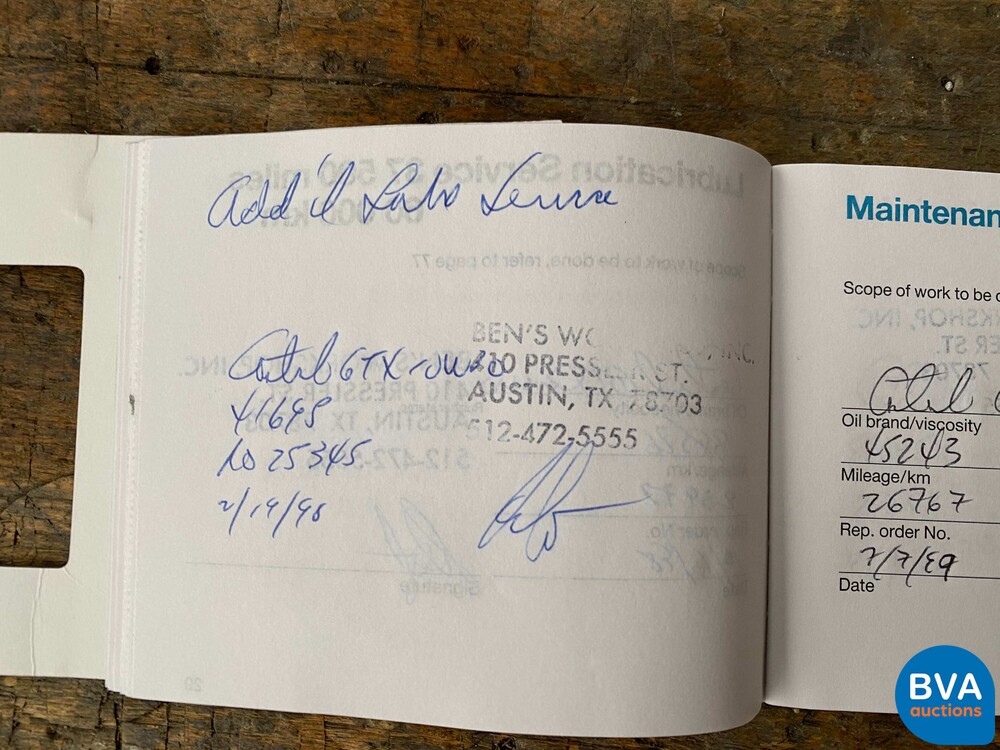 Add'l Lubo Service
BEN'S WO INC.
410 PRESSLER ST.
AUSTIN, TX 78703
512-472-5555
Castrol GTX 20W50
41698
No 25345
2/19/98
Maintenan
Scope of work to be d
Castrol
Oil brand/viscosity
45243
Mileage/km
26767
Rep. order No.
7/7/99
Date
BVA
auctions